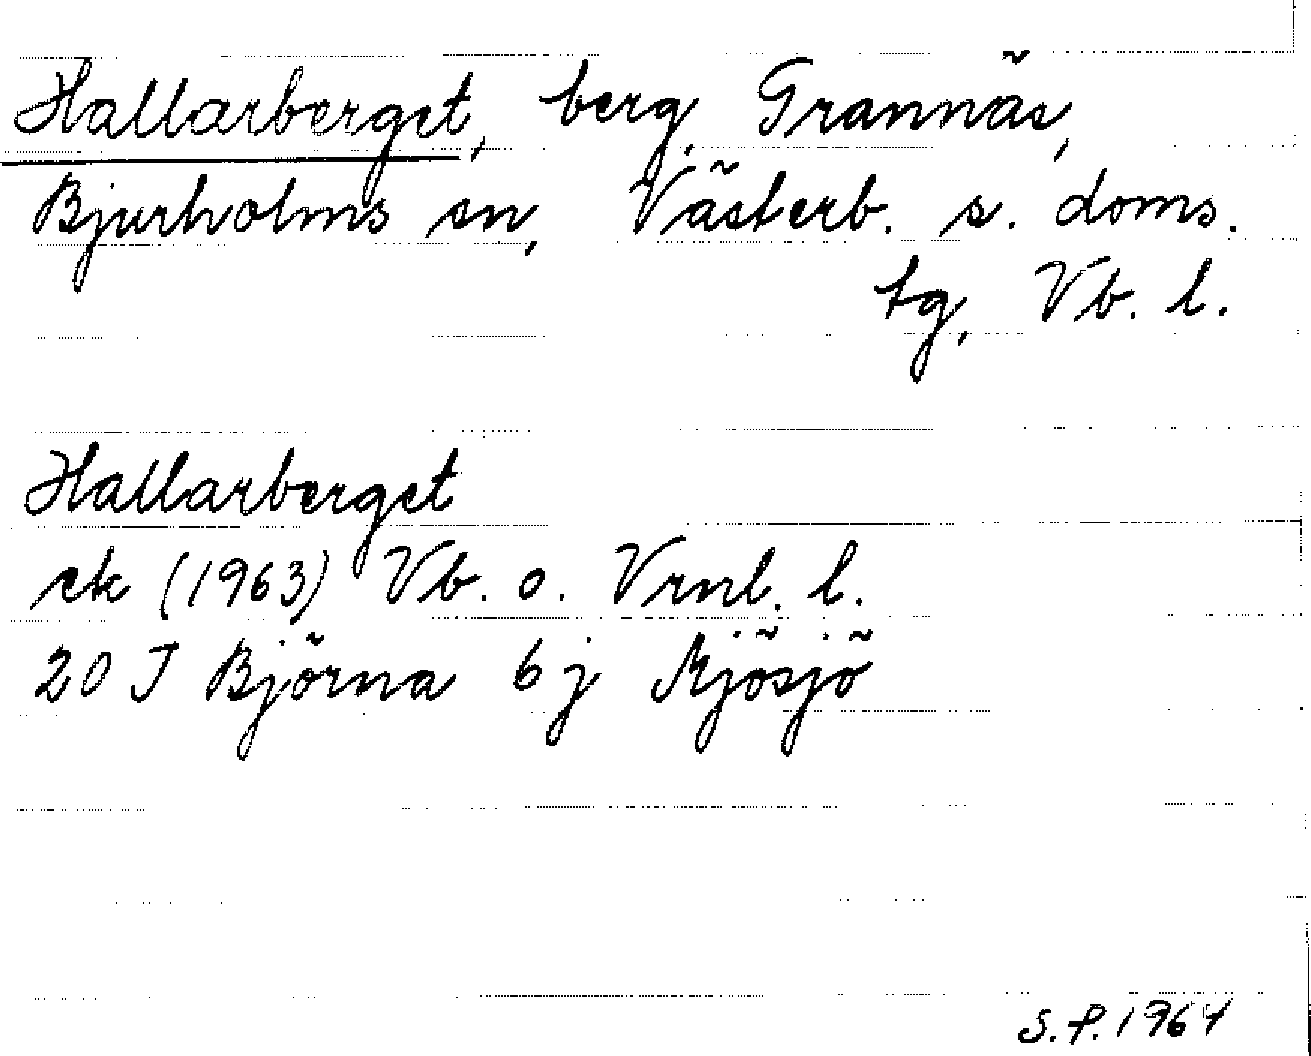 Hallarberget, berg, Grannäs,
Bjurholms sn, Västerb. s. doms.
tg, Vb. l.
Hallarberget
ek (1963) Vb. o. Vrnl. l.
20 J Björna 6 j Mjösjö
S.P. 1964